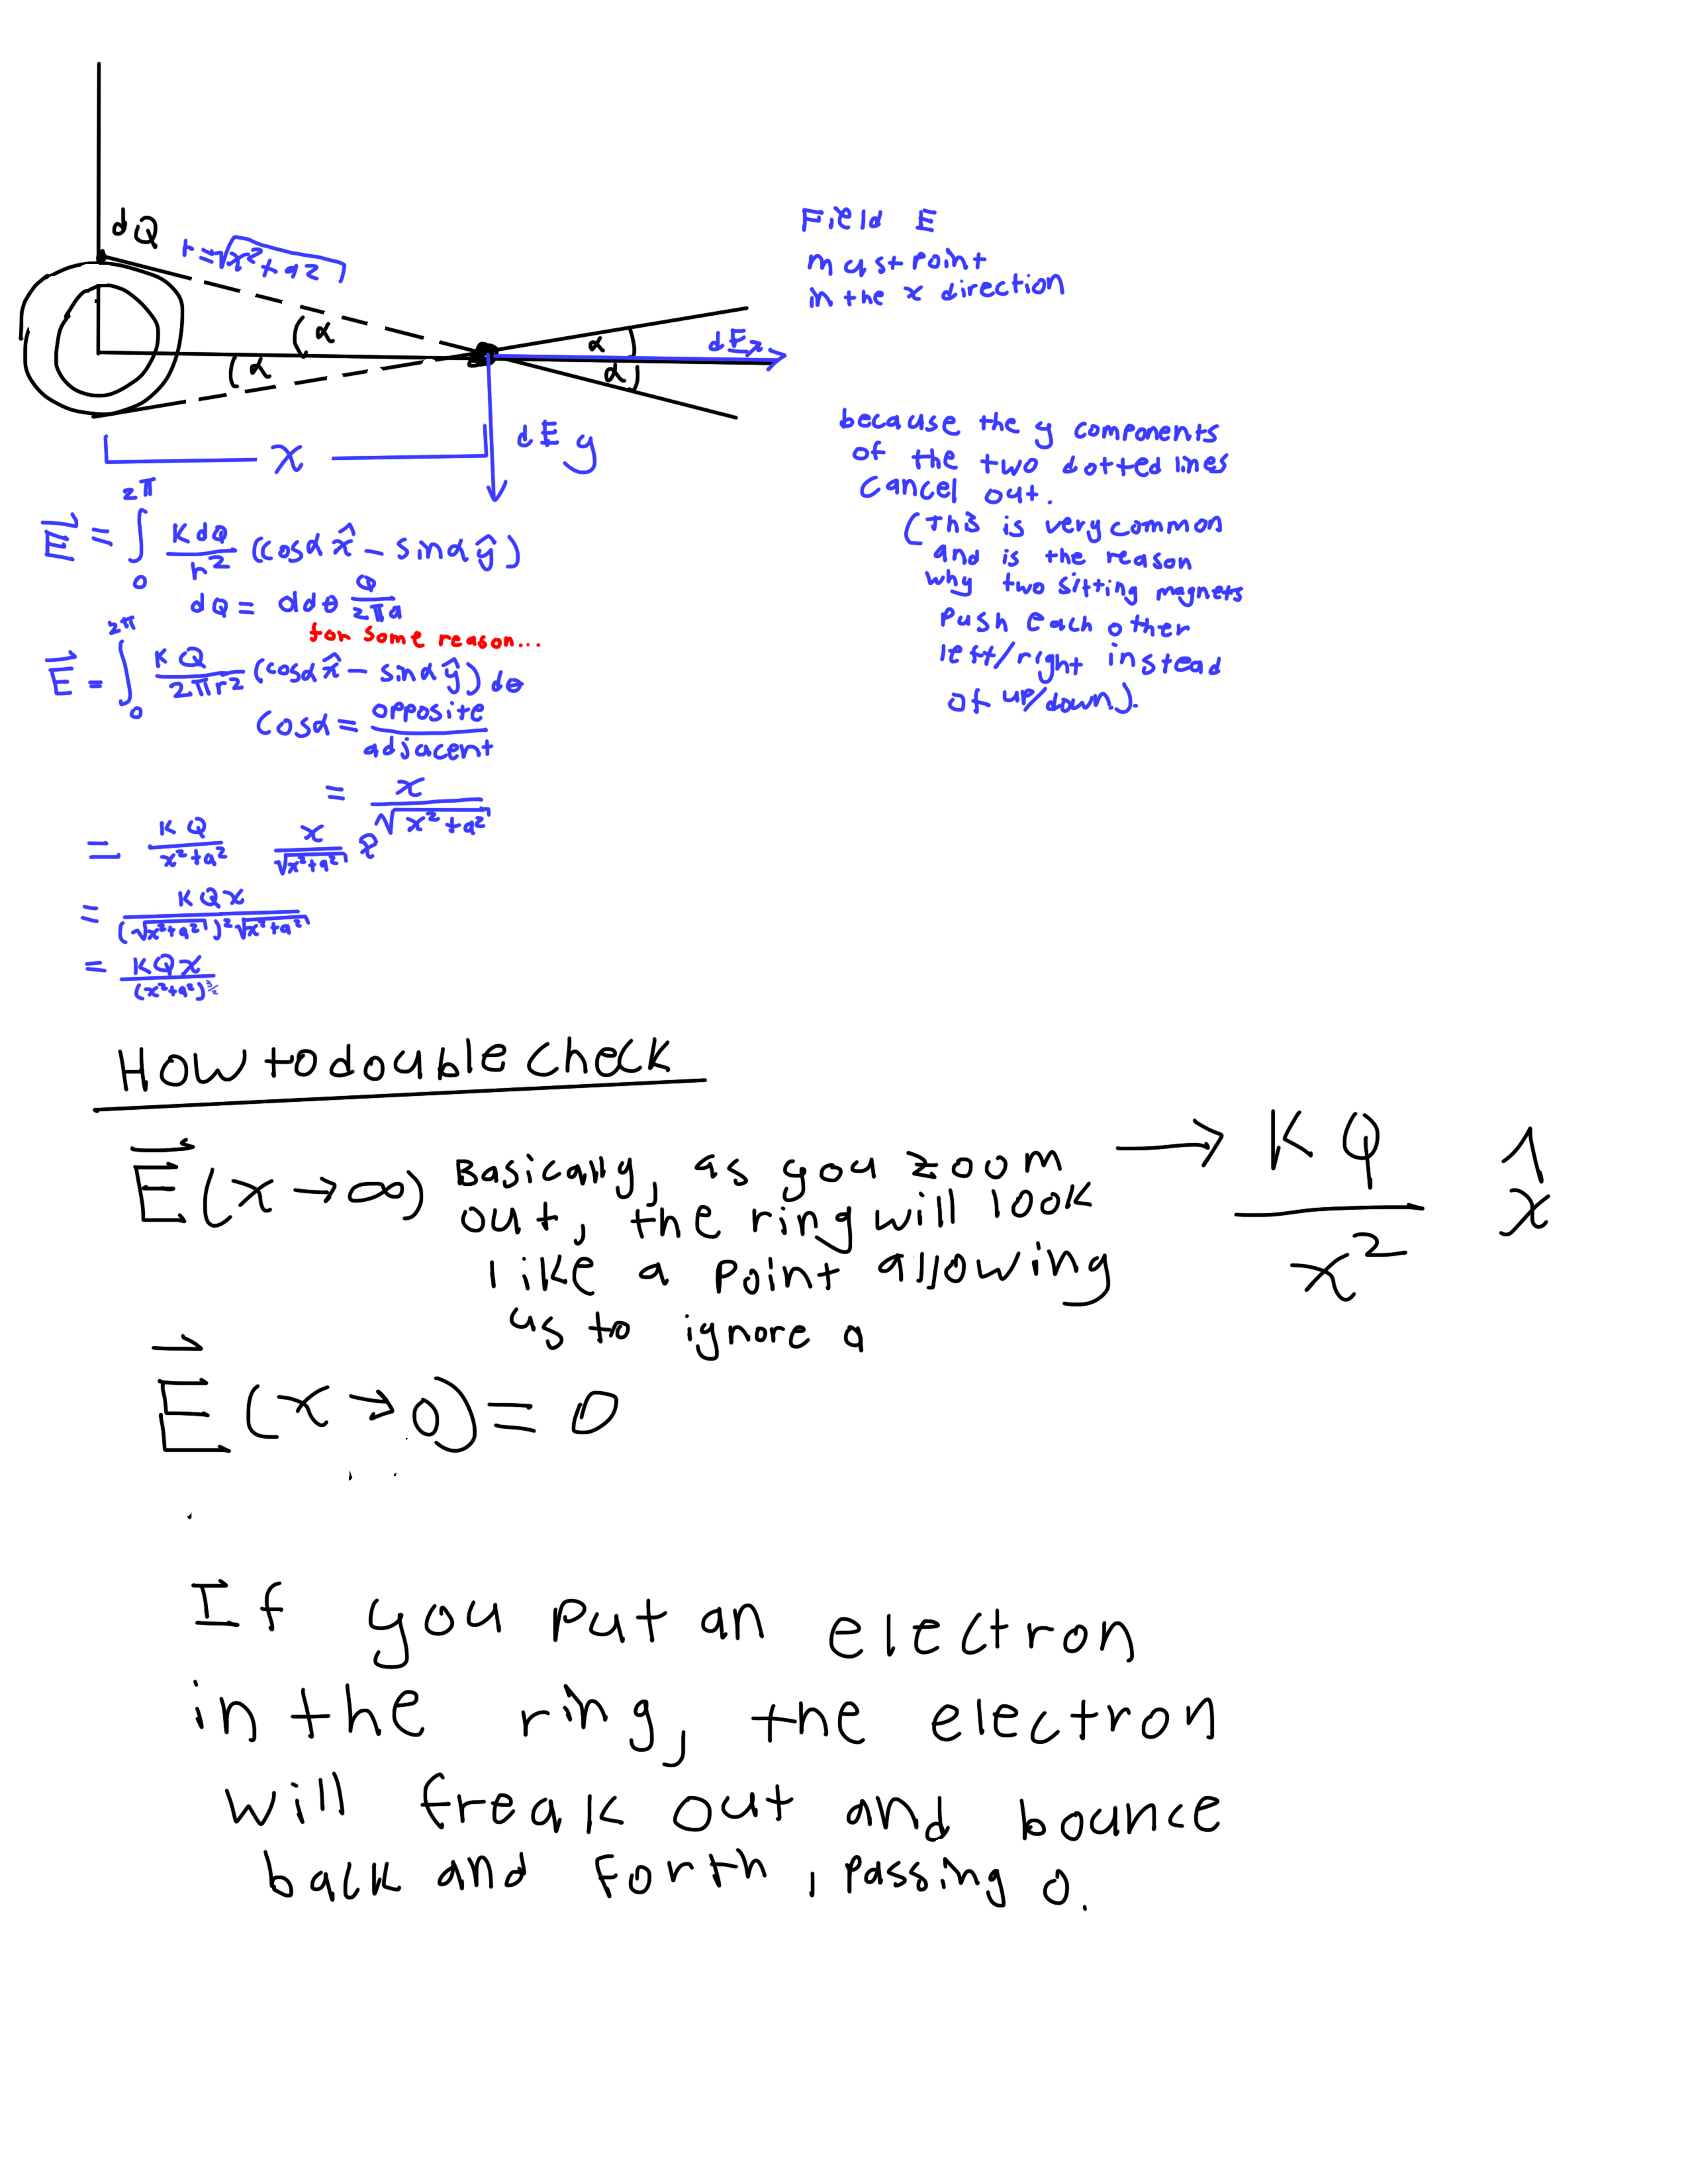 dQ
r = √x²+a²
α
α
α
α
dEx
dEy
x
Field E
must point
in the x direction
because the y components
of the two dotted lines
cancel out.
(this is very common
and is the reason
why two sitting magnets
push each other
left/right instead
of up/down).
E⃗ = ∫₀^2π K dQ / r² (cosα x̂ − sinα ŷ)
dQ = adθ Q / 2πa
for some reason...
E⃗ = ∫₀^2π K Q / 2πr² (cosα x̂ − sinα ŷ) dθ
cosα = opposite / adjacent
= x / √x²+a²
= KQ / x²+a² x / √x²+a² x̂
= KQx / (√x²+a²)² √x²+a²
= KQx / (x²+a²)^3/2
How to double check
E⃗(x→∞) Basically, as you zoom
out, the ring will look
like a point allowing
us to ignore a
→ KQ / x² 1 / x
E⃗(x→0) = 0
If you put an electron
in the ring, the electron
will freak out and bounce
back and forth, passing 0.